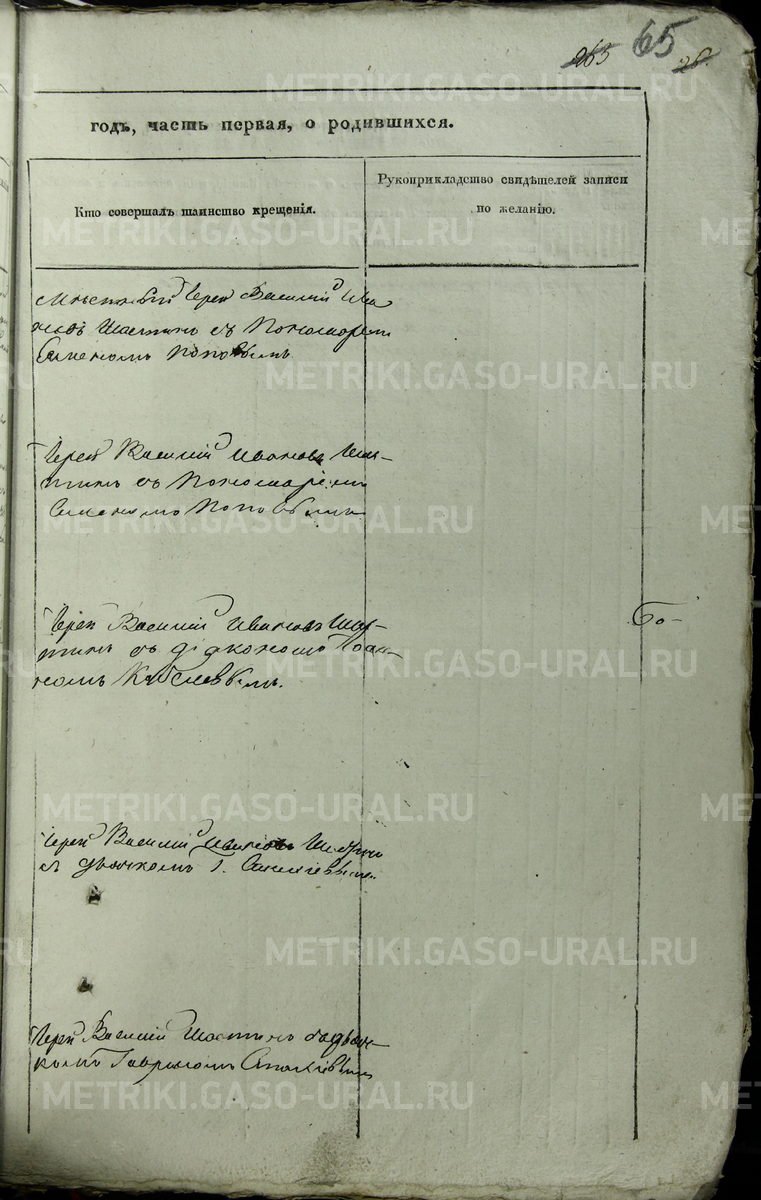 265 65 26.
годъ, часть первая, о родившихся.
Кто совершалъ таинство крещенія.
Рукоприкладство свидѣтелей записи
по желанію.
Мѣстный Іерей Василій Ива
новъ Шастинъ съ Пономаремъ
Симеономъ Поповымъ
Іерей Василій Ивановъ Шас-
тинъ съ Пономаремъ
Симеономъ Поповымъ
Іерей Василій Ивановъ Шас-
тинъ съ діакономъ Іоан-
номъ
Бо-
Іерей Василій Ивановъ Шастинъ
съ дьячкомъ Г.
Іерей Василій Шастинъ съ дьяч-
комъ Гавриломъ
METRIKI.GASO-URAL.RU